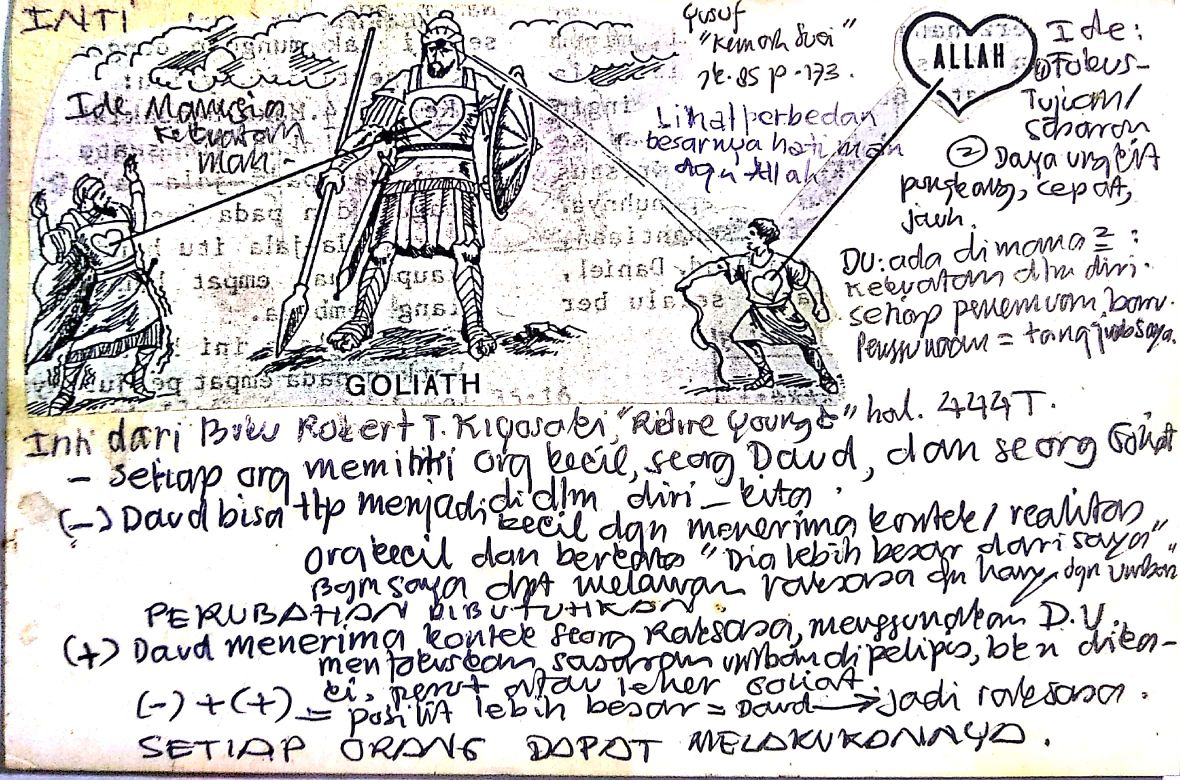 INTI
Ide Manusia
kekuatan
man -
Yusuf
"Kemah Suci"
P. 173.
Lihat perbedan
besarnya hati man
dgn Allah
ALLAH
Ide:
① Fokus-
Tujuan/
sasaran
② Daya ungkit
cepat,
jauh.
DU: ada dimana²:
kekuatan dlm diri.
setiap penemuan baru.
Penggunaan = tang jwab saya.
GOLIATH
Inti dari Buku Robert T. Kiyosaki, "Retire Young" hal. 444 T.
- setiap org memiliki org kecil, seorg Daud, dan seorg Goliat
di dlm diri - kita.
(-) Daud bisa ttp menjadi kecil dgn menerima kontek/realitas
org kecil dan berkata "Dia lebih besar dari saya"
Bgm saya dpt melawan raksasa dn hany dgn umban"
PERUBAHAN DIBUTUHKAN.
(+) Daud menerima kontek seorg Raksasa, menggunakan D.U.
menfokuskan sasaran umban di pelipis, bkn dika-
ki, perut atau leher Goliat.
(-) + (+) = positif lebih besar = Daud → jadi raksasa.
SETIAP ORANG DAPAT MELAKUKANNYA.